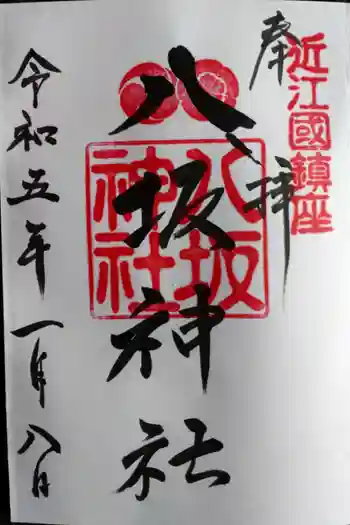 奉拝
近江國鎮座
八坂神社
八坂神社
令和五年一月八日